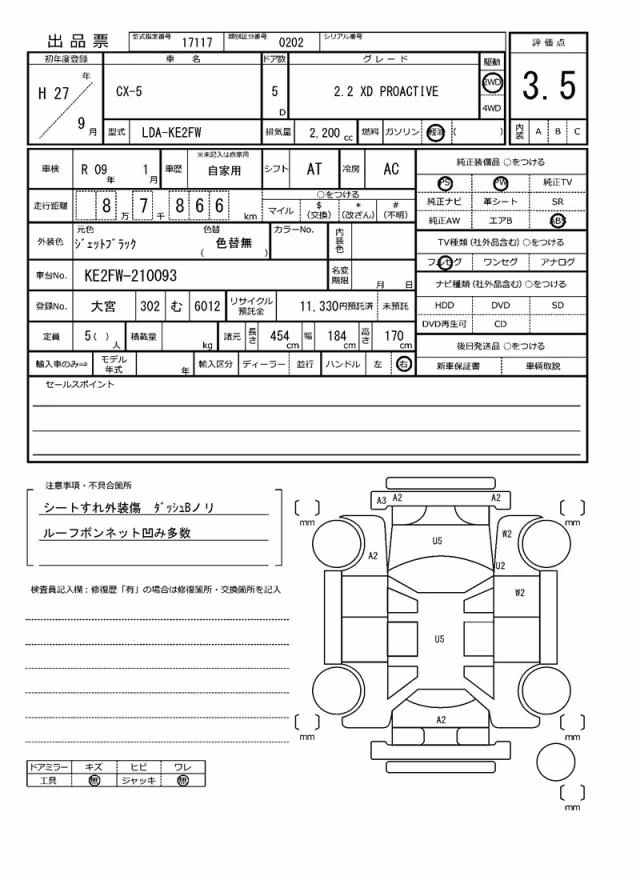 出品票
型式指定番号 17117 類別区分番号 0202 シリアル番号
初年度登録 車名 ドア数 グレード 駆動 評価点
H 27 年 9 月 CX-5 5 D 2.2 XD PROACTIVE 2WD 4WD 3.5
型式 LDA-KE2FW 排気量 2,200 cc 燃料 ガソリン 軽油 ( ) 内装 A B C
車検 R 09 年 1 月 車歴 ※未記入は自家用 自家用 シフト AT 冷房 AC
走行距離 8 万 7 千 8 6 6 km ○をつける マイル $ (交換) * (改ざん) # (不明)
外装色 元色 ジェットブラック 色替 色替無 ( ) カラーNo. 内装色
車台No. KE2FW-210093 名変期限 月 日
登録No. 大宮 302 む 6012 リサイクル預託金 11,330円預託済 未預託
定員 5( ) 人 積載量 kg 諸元 長さ 454 cm 幅 184 cm 高さ 170 cm
輸入車のみ⇒ モデル年式 年 輸入区分 ディーラー 並行 ハンドル 左 右
純正装備品 ○をつける
PS PW 純正TV
純正ナビ 革シート SR
純正AW エアB ABS
TV種類 (社外品含む) ○をつける
フルセグ ワンセグ アナログ
ナビ種類 (社外品含む) ○をつける
HDD DVD SD
DVD再生可 CD
後日発送品 ○をつける
新車保証書 車輌取説
セールスポイント
注意事項・不具合箇所
シートすれ外装傷 ダッシュBノリ
ルーフボンネット凹み多数
検査員記入欄：修復歴「有」の場合は修復箇所・交換箇所を記入
ドアミラー キズ ヒビ ワレ
工具 無 ジャッキ 無
A3 A2 A2
mm mm
U5 W2
A2 U2
W2
U5
A2
mm mm
mm